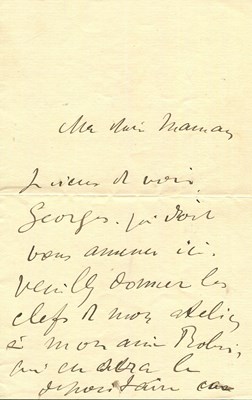 Ma chère Maman
Je viens de voir
Georges. qui doit
vous amener ici.
veuillez donner les
clefs de mon atelier
à mon ami Robin,
qui en sera le
dépositaire